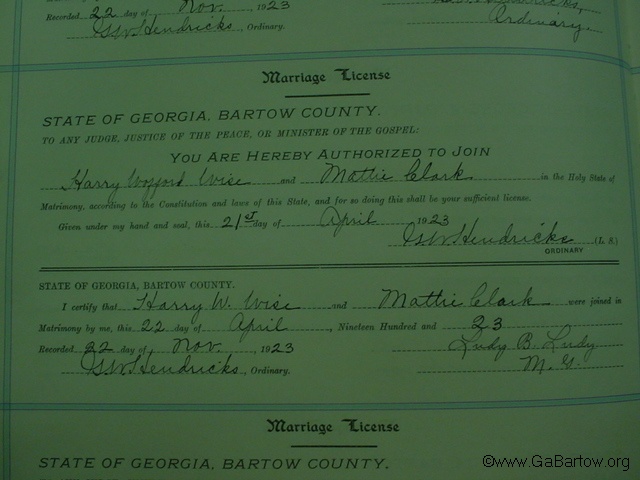 Recorded 22 day of Nov. 1923
GW Hendricks, Ordinary. Ordinary.
Marriage License
STATE OF GEORGIA, BARTOW COUNTY.
TO ANY JUDGE, JUSTICE OF THE PEACE, OR MINISTER OF THE GOSPEL:
YOU ARE HEREBY AUTHORIZED TO JOIN
Harry Wofford Wise and Mattie Clark in the Holy State of
Matrimony, according to the Constitution and laws of this State, and for so doing this shall be your sufficient license.
Given under my hand and seal, this 21st day of April 1923
GW Hendricks (L. S.)
ORDINARY
STATE OF GEORGIA, BARTOW COUNTY.
I certify that Harry W. Wise and Mattie Clark were joined in
Matrimony by me, this 22 day of April, Nineteen Hundred and 23
Recorded 22 day of Nov. 1923 Ludy B. Ludy
GW Hendricks, Ordinary. M. G.
Marriage License
STATE OF GEORGIA, BARTOW COUNTY.
©www.GaBartow.org